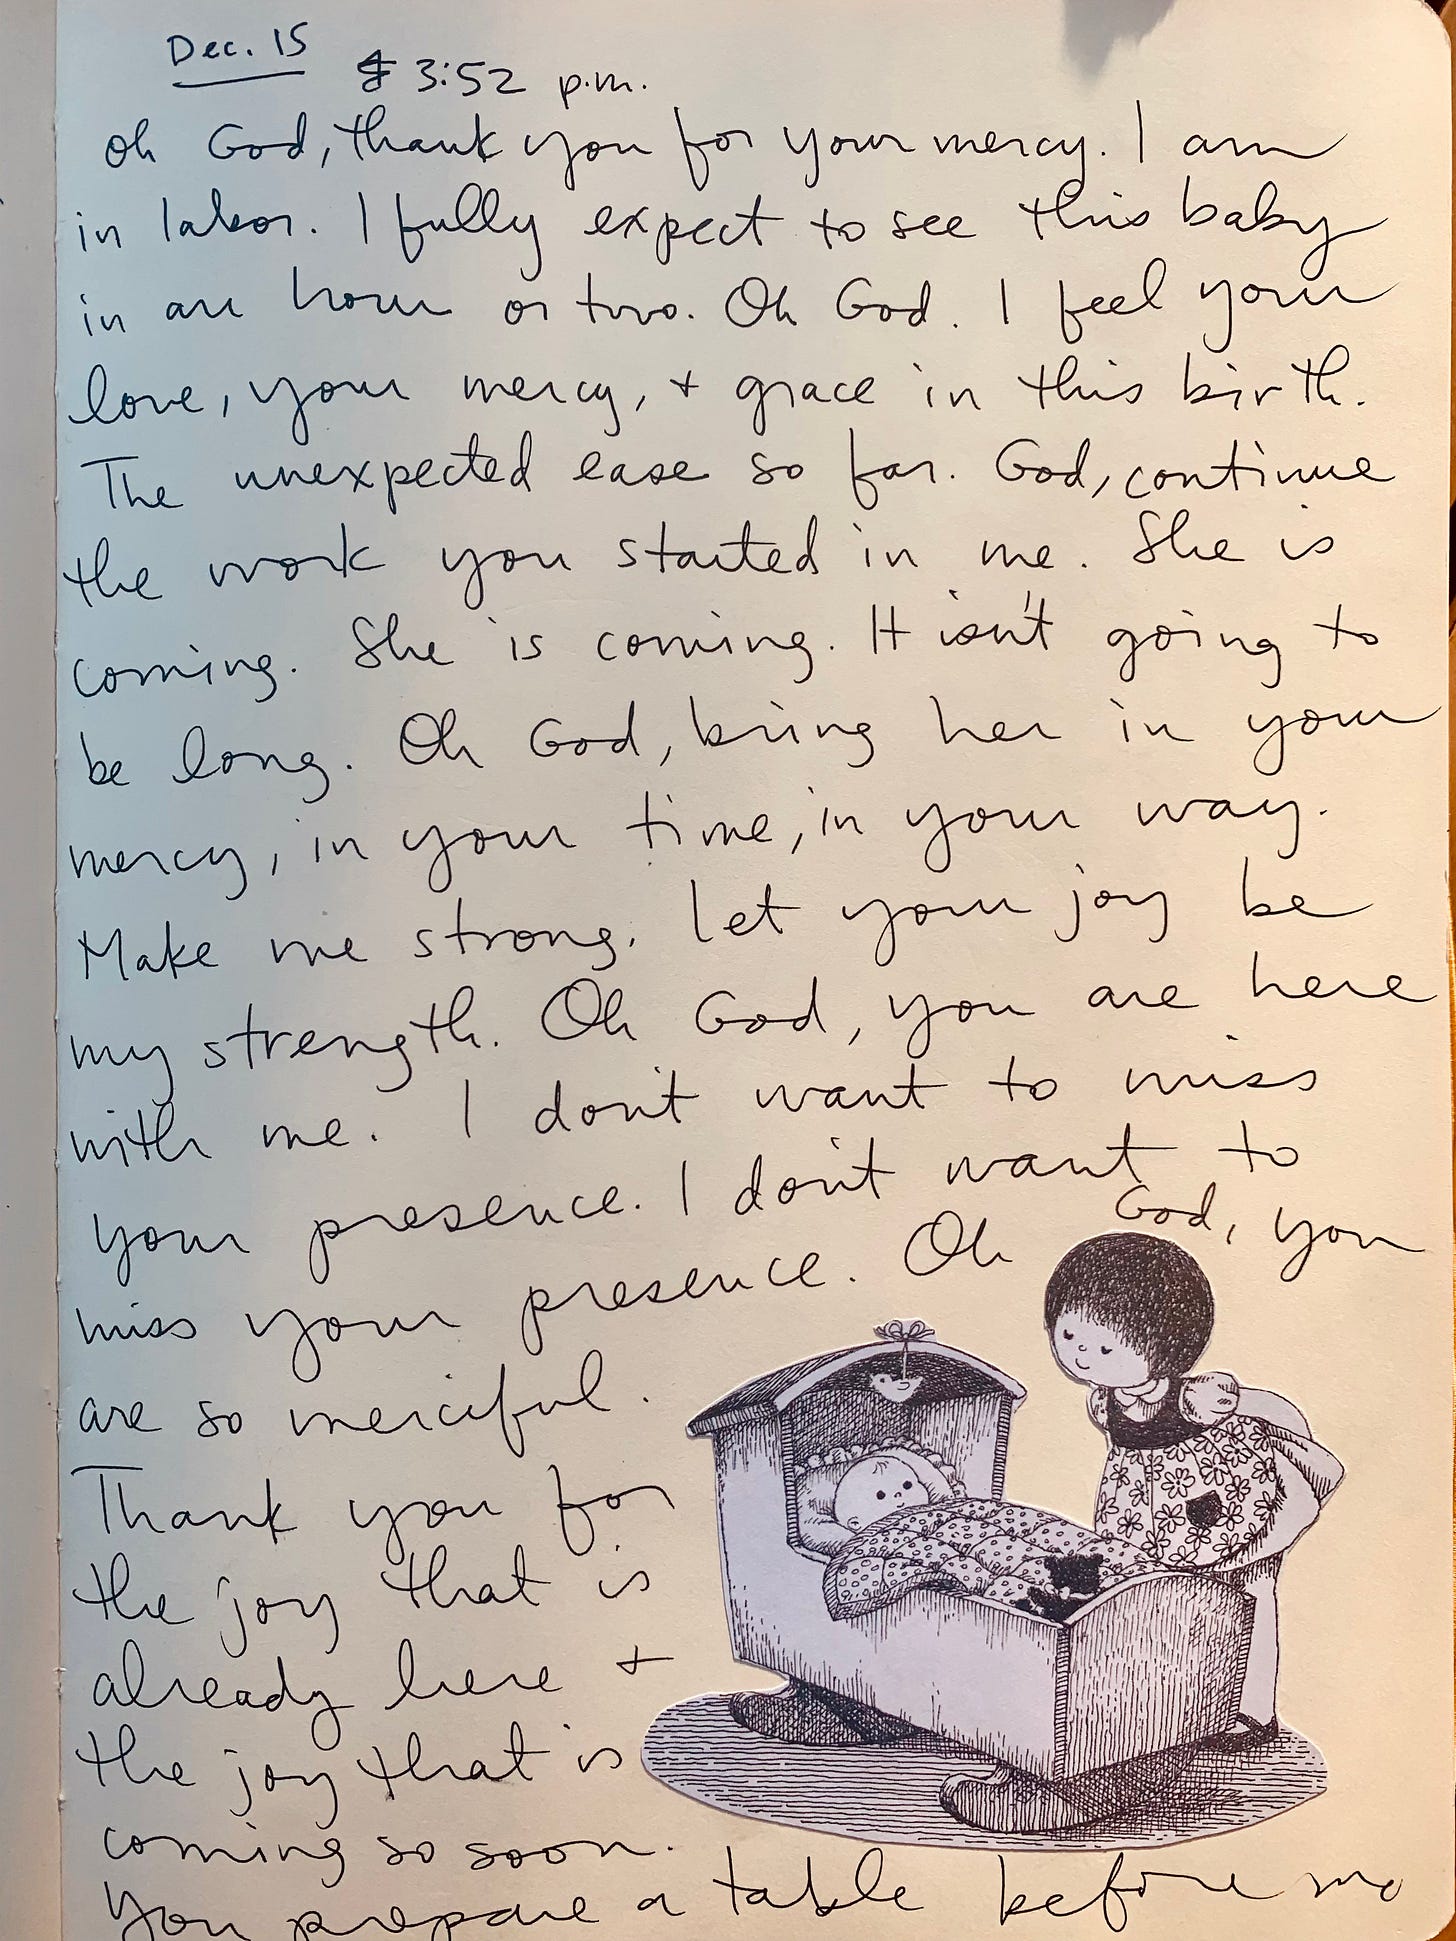 Dec. 15
3:52 p.m.
Oh God, thank you for your mercy. I am
in labor. I fully expect to see this baby
in an hour or two. Oh God. I feel your
love, your mercy, + grace in this birth.
The unexpected ease so far. God, continue
the work you started in me. She is
coming. She is coming. It isn't going to
be long. Oh God, bring her in your
mercy, in your time, in your way.
Make me strong. Let your joy be
my strength. Oh God, you are here
with me. I don't want to miss
your presence. I don't want to
miss your presence. Oh God, you
are so merciful.
Thank you for
the joy that is
already here +
the joy that is
coming so soon.
You prepare a table before me